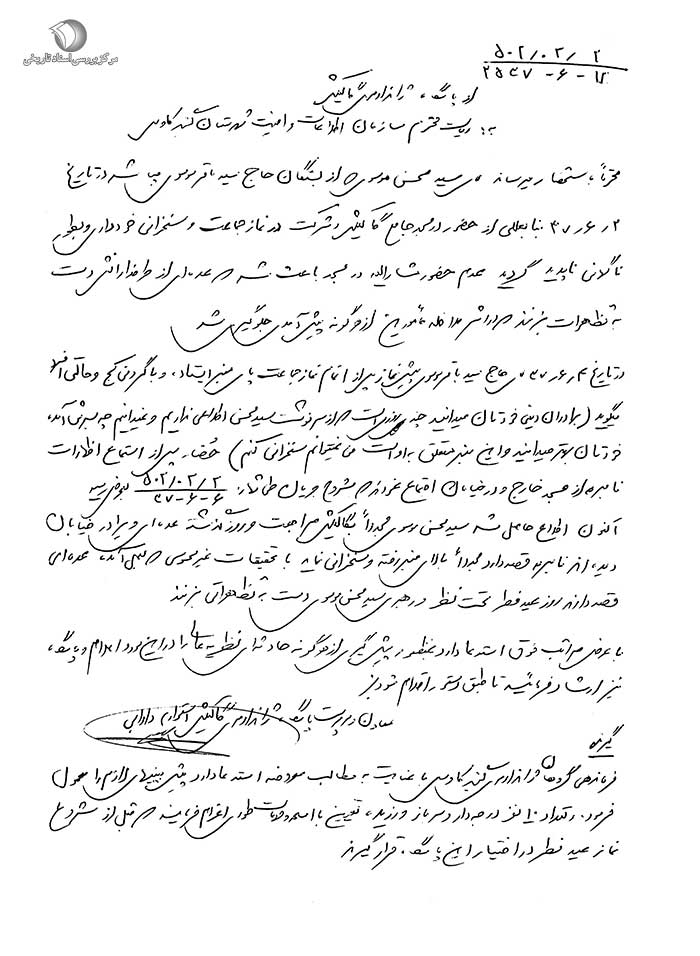 مرکز بررسی اسناد تاریخی
۵۰۲/۰۲/۲
۲۵۳۷-۶-۱۲
از پاسگاه ژاندارمری گالیکش
به: ریاست محترم سازمان اطلاعات و امنیت شهرستان گنبد کاوس
محترماً باستحضار میرساند سید محسن موسوی که از بستگان حاج سید باقر موسوی میباشد در تاریخ
۲ر۶ر۳۷ بنا بعللی از حضور در مسجد جامع گالیکش و شرکت در نماز جماعت و سخنرانی خودداری و بطور
ناگهانی ناپدید گردید عدم حضور مشارالیه در مسجد باعث شد که عده‌ای از طرفدارانش دست
به تظاهرات بزنند که در اثر مداخله مأمورین از هرگونه پیش آمدی جلوگیری شد
در تاریخ ۴ر۶ر۳۷ حاج سید باقر موسوی پیشنماز پس از اتمام نماز جماعت پای منبر ایستاده و با گردن کج و حالتی افسرده
میگوید (برادران دینی خودتان میدانید چند روزی است که از سرنوشت سید محسن اطلاعی نداریم و نمیدانیم چه بسرش آمده
خودتان بهتر میدانید و این منبر متعلق به اوست من نمیتوانم سخنرانی کنم) حضار پس از استماع اظهارات
نامبرده از مسجد خارج و در خیابان اجتماع نمودند که مشروح جریان طی شماره ۵۰۲/۰۲/۲ ۳۷-۶-۶ بعرض رسید
اکنون اطلاع حاصل شد سید محسن موسوی مجدداً بگالیکش مراجعت و روز گذشته عده‌ای ویرا در خیابان
دیده‌اند نامبرده قصد دارد مجدداً بالای منبر رفته و سخنرانی نماید با تحقیقات غیرمحسوس که بعمل آمده عده‌ای
قصد دارند روز عید فطر تحت نظر و رهبری سید محسن موسوی دست به تظاهراتی بزنند
با عرض مراتب فوق استدعا دارد بمنظور پیش گیری از هرگونه حادثه‌ای نظریه عالی را در این مورد اعلام و پاسگاه
نیز ارشاد فرمائید تا طبق دستور اقدام شود
معاون و سرپرست پاسگاه ژاندارمری گالیکش استوار دارابی
گیرنده
فرماندهی گروهان ژاندارمری گنبد کاوس با عنایت به مطالب معروضه استدعا دارد پیش بینیهای لازم را معمول
فرموده و تعداد ۱۰ نفر درجه‌دار و سرباز ورزیده تعیین با اسلحه و مهمات طوری اعزام فرمایند که قبل از شروع
نماز عید فطر در اختیار این پاسگاه قرار گیرند